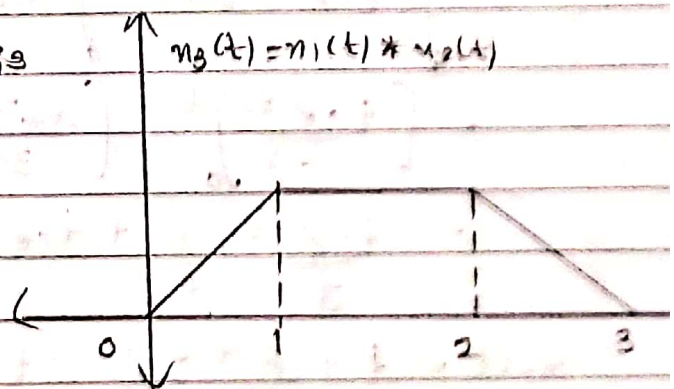 x₃(t) = x₁(t) * x₂(t)
0 1 2 3